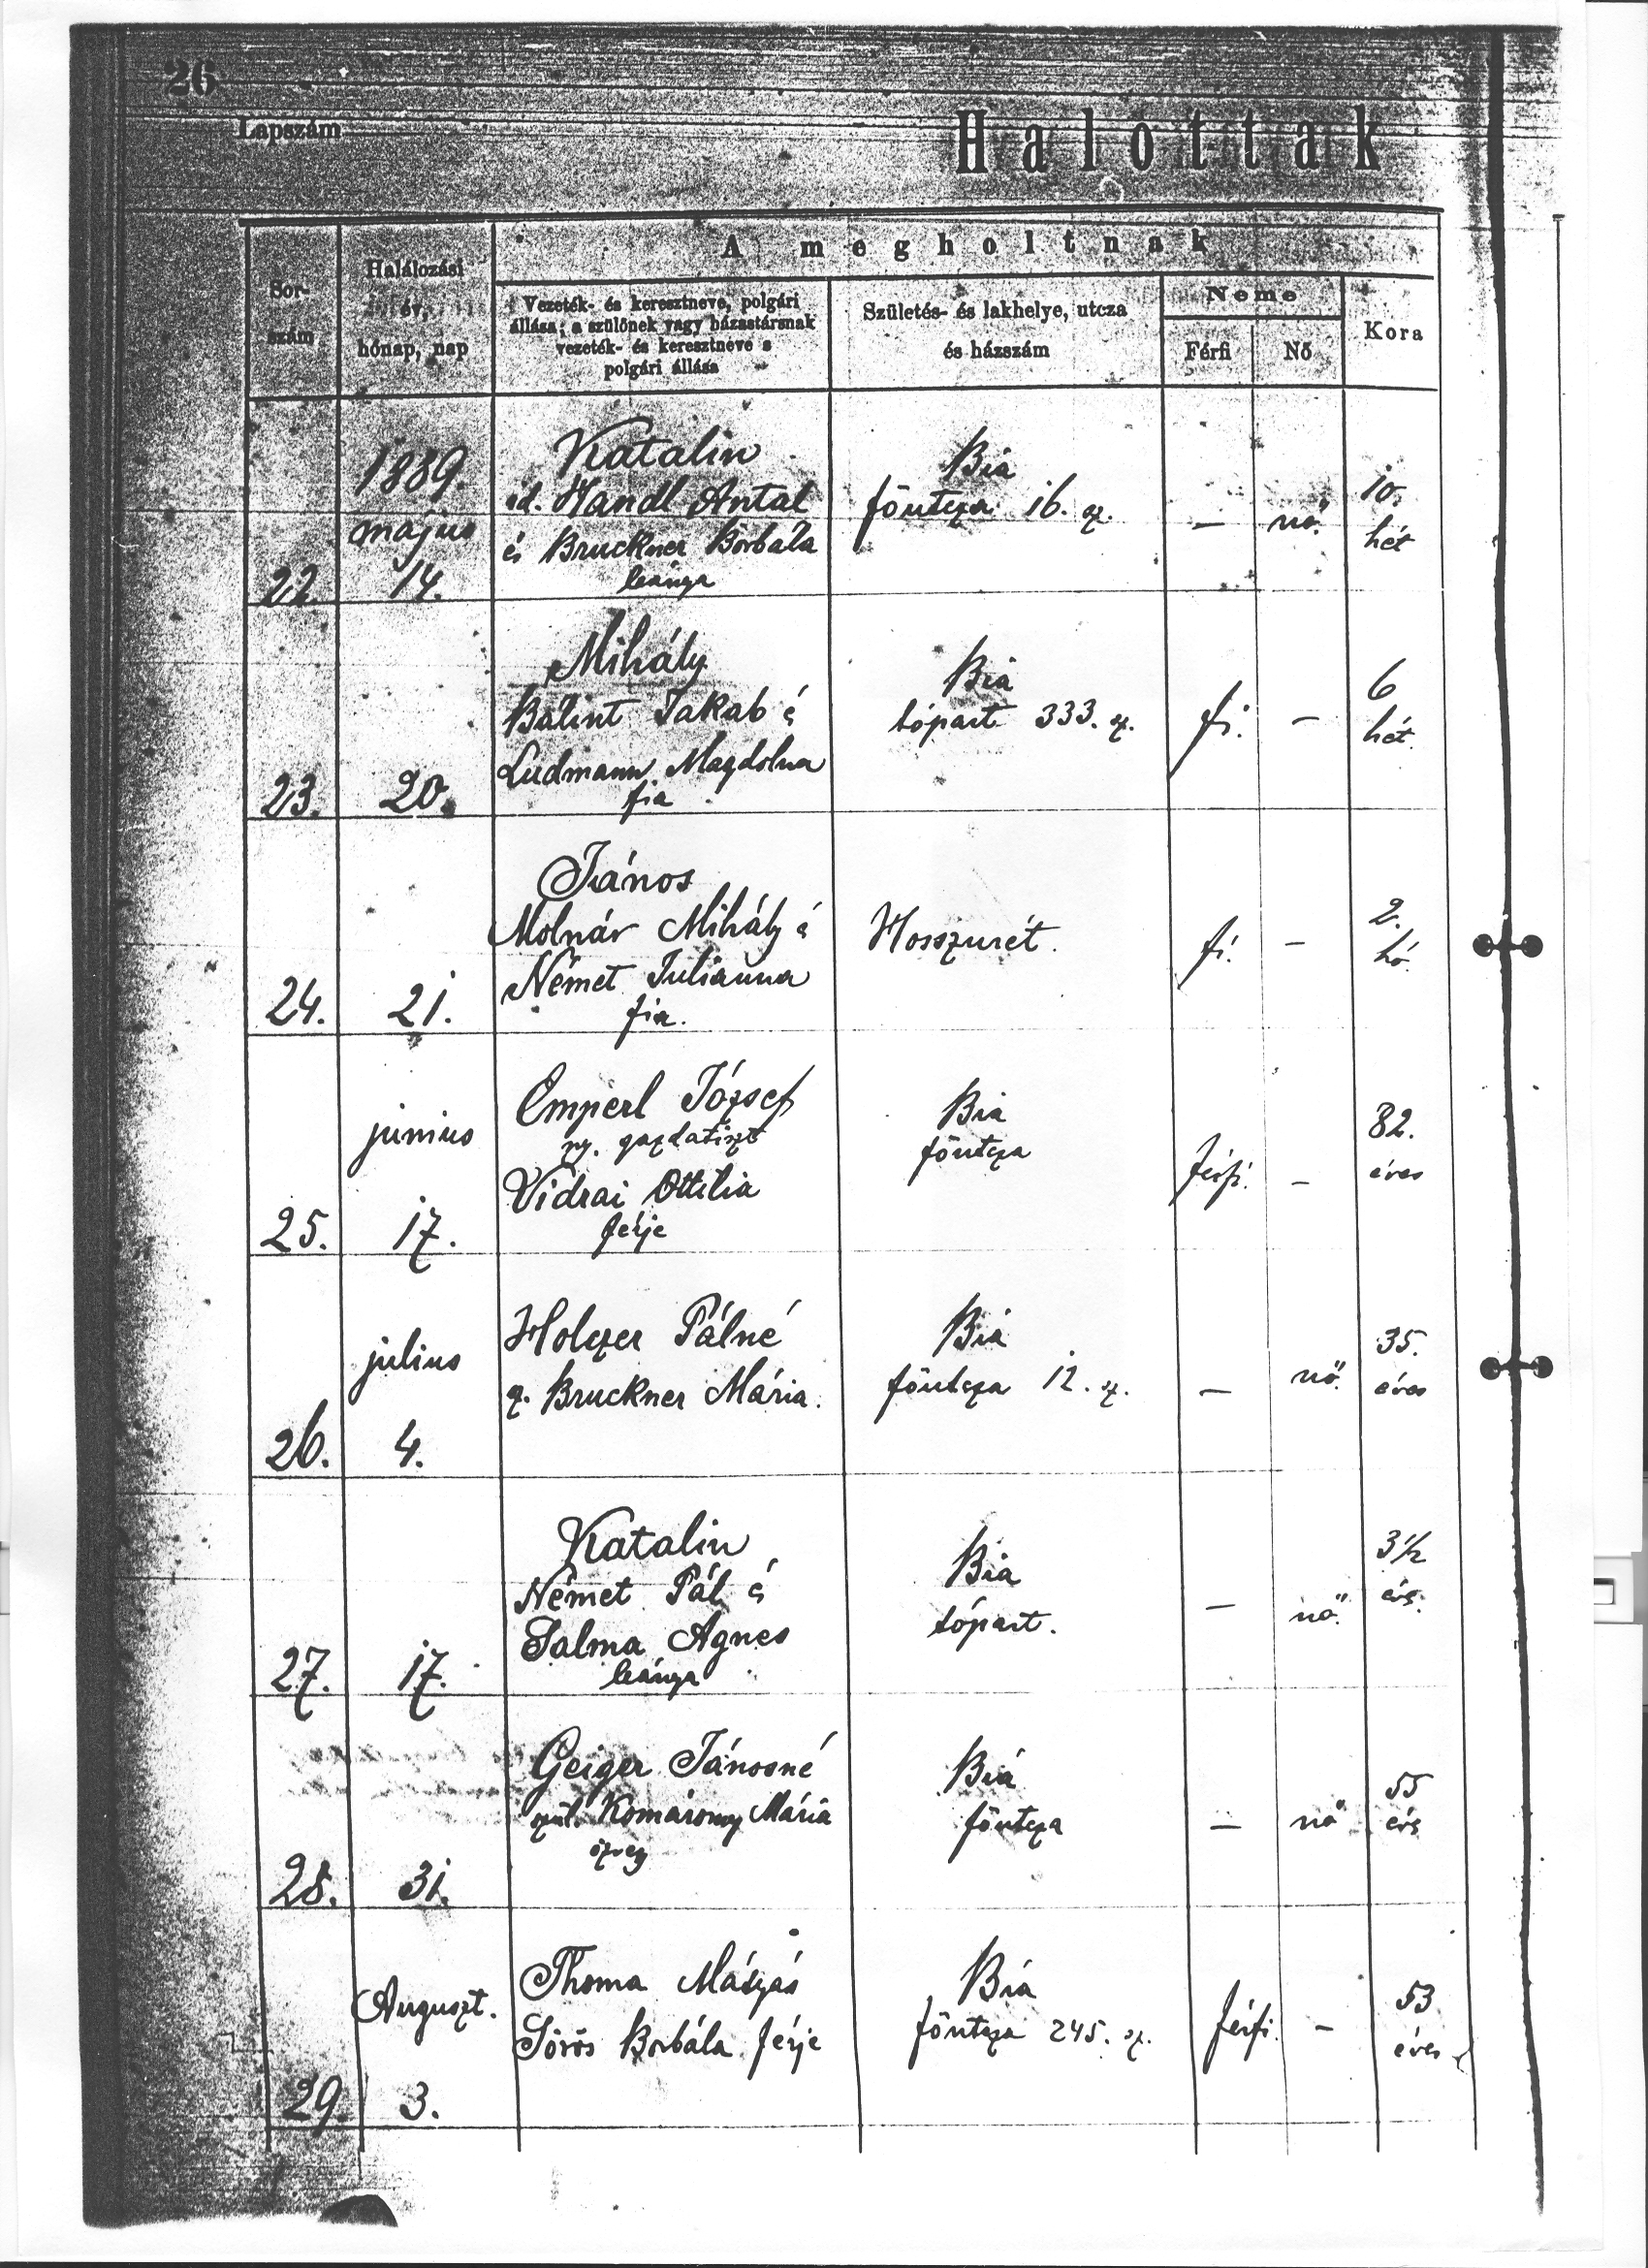 26
Lapszám
Halottak
A megholtnak
Sor-
szám
Halálozási
év,
hónap, nap
Vezeték- és keresztneve, polgári
állása; a szülőnek vagy házastársnak
vezeték- és keresztneve s
polgári állása
Születés- és lakhelye, utcza
és házszám
Neme
Férfi
Nő
Kora
22.
1889
május
14.
Katalin
id. Handl Antal
és Bruckner Borbála
leánya
Bia
főutcza 16. sz.
—
nő.
10.
hét
23.
20.
Mihály
Bálint Jakab és
Ludmann Magdolna
fia
Bia
tópart 333. sz.
fi.
—
6
hét
24.
21.
János
Molnár Mihály és
Német Julianna
fia.
Hosszurét.
fi.
—
2.
hó.
25.
junius
17.
Emperl József
ny. gazdatiszt
Vidrai Ottilia
férje
Bia
főutcza
férfi.
—
82.
éves
26.
julius
4.
Holczer Pálné
sz. Bruckner Mária.
Bia
főutcza 12. sz.
—
nő.
35.
éves
27.
17.
Katalin
Német Pál és
Salma Agnes
leánya
Bia
tópart.
—
nő.
3 1/2
éves
28.
31.
Geiger Jánosné
szül. Komáromy Mária
özvegy
Bia
főutcza
—
nő
55
éves
29.
Auguszt.
3.
Thoma Mátyás
Sörös Borbála férje
Bia
főutcza 245. sz.
férfi.
—
53
éves